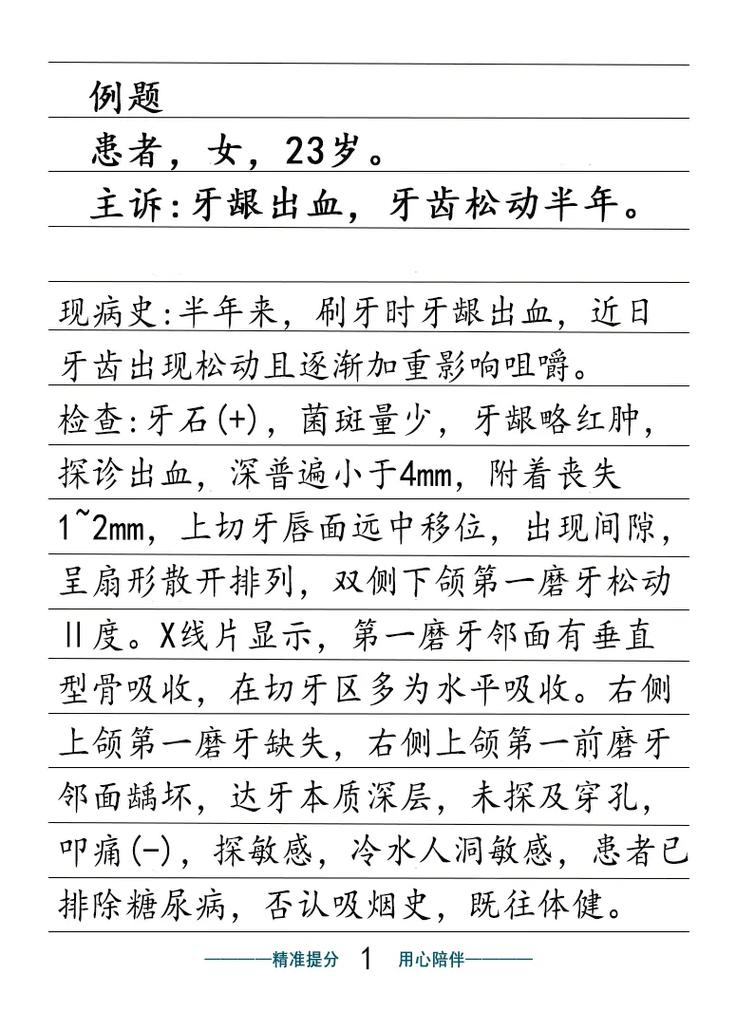 例题
患者，女，23岁。
主诉:牙龈出血，牙齿松动半年。
现病史:半年来，刷牙时牙龈出血，近日
牙齿出现松动且逐渐加重影响咀嚼。
检查:牙石(+)，菌斑量少，牙龈略红肿，
探诊出血，深普遍小于4mm，附着丧失
1~2mm，上切牙唇面远中移位，出现间隙，
呈扇形散开排列，双侧下颌第一磨牙松动
Ⅱ度。X线片显示，第一磨牙邻面有垂直
型骨吸收，在切牙区多为水平吸收。右侧
上颌第一磨牙缺失，右侧上颌第一前磨牙
邻面龋坏，达牙本质深层，未探及穿孔，
叩痛(-)，探敏感，冷水人洞敏感，患者已
排除糖尿病，否认吸烟史，既往体健。
————精准提分 1 用心陪伴————